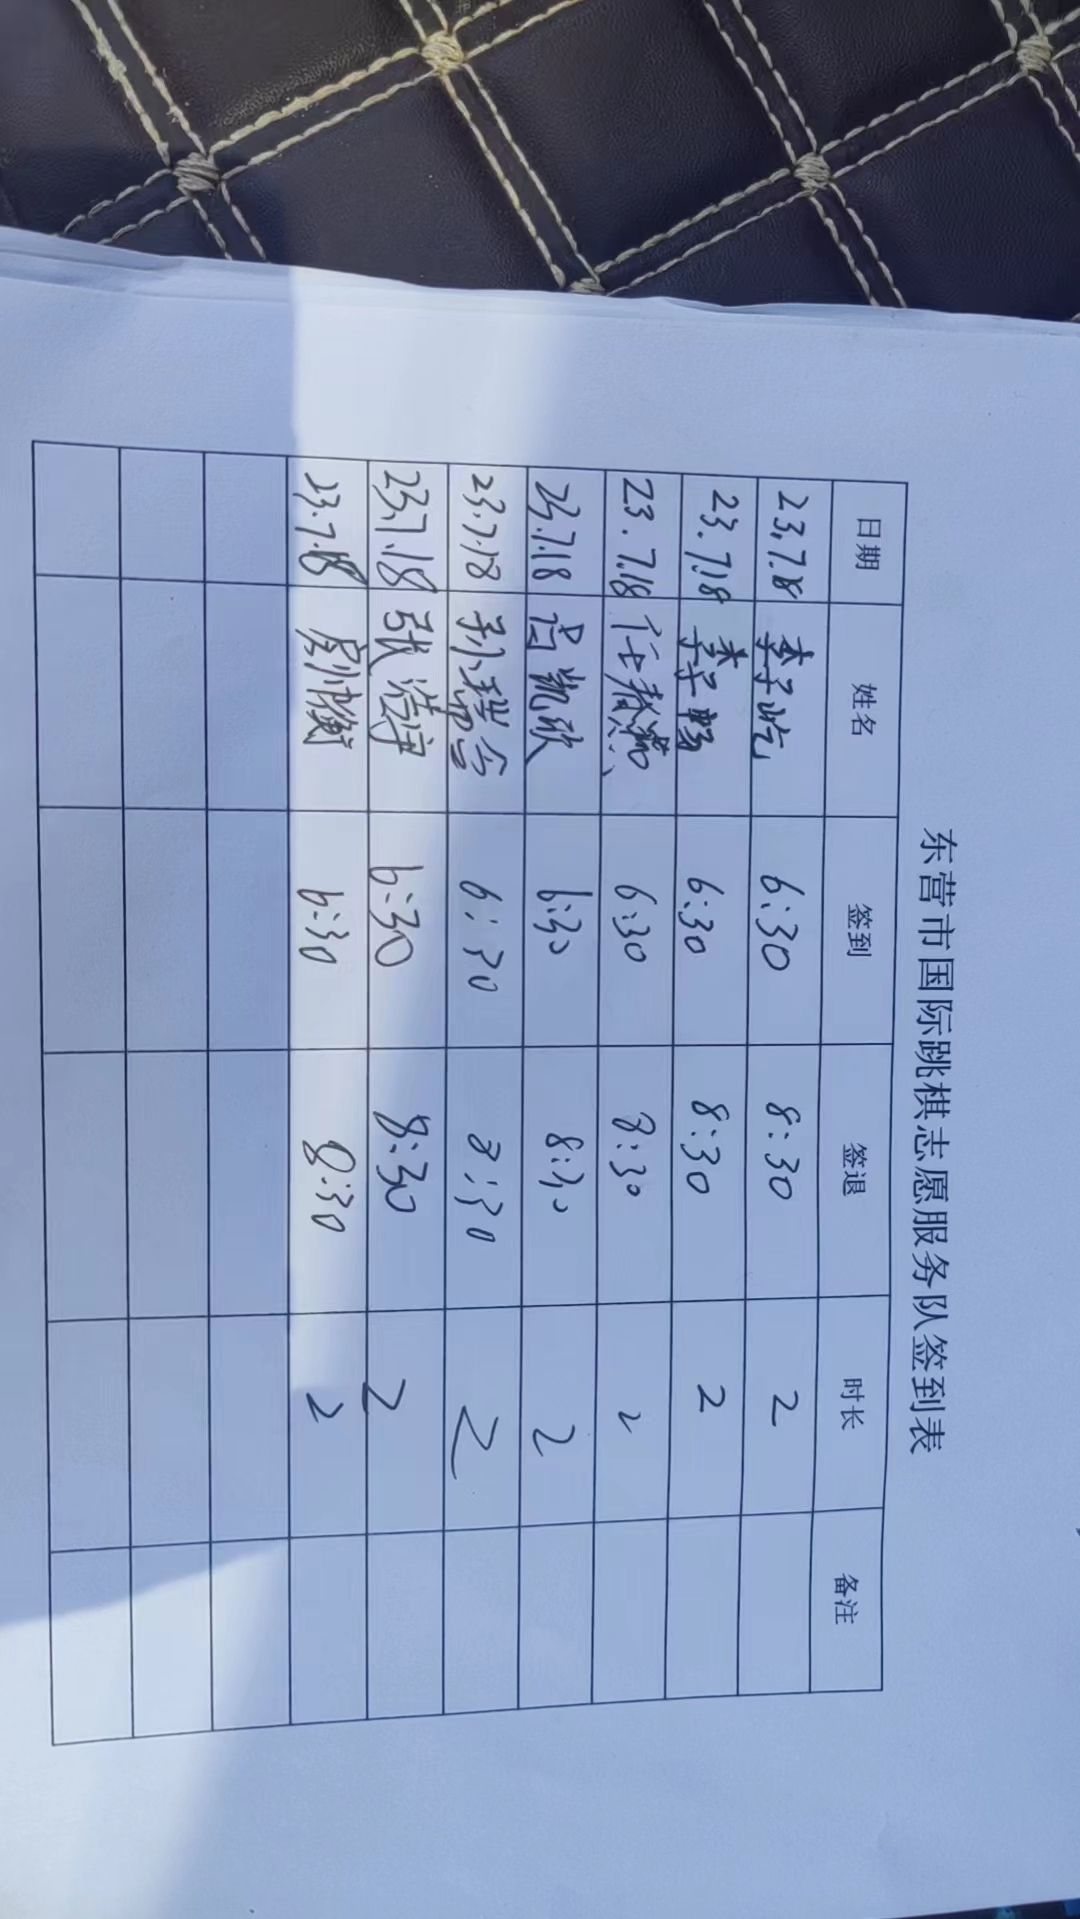 东营市国际跳棋志愿服务队签到表
日期 姓名 签到 签退 时长 备注
23.7.18 李子屹 6:30 8:30 2
23.7.18 李子畅 6:30 8:30 2
23.7.18 任春 6:30 8:30 2
23.7.18 吕凯欣 6:30 8:30 2
23.7.18 孙瑞 6:30 8:30 2
23.7.18 张浩 6:30 8:30 2
23.7.18 6:30 8:30 2